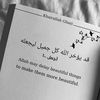 Khairullah Ghazi
قد يؤخر الله كل جميل ليجعله
أجمل.
Allah may delay beautiful things
to make them more beautiful.